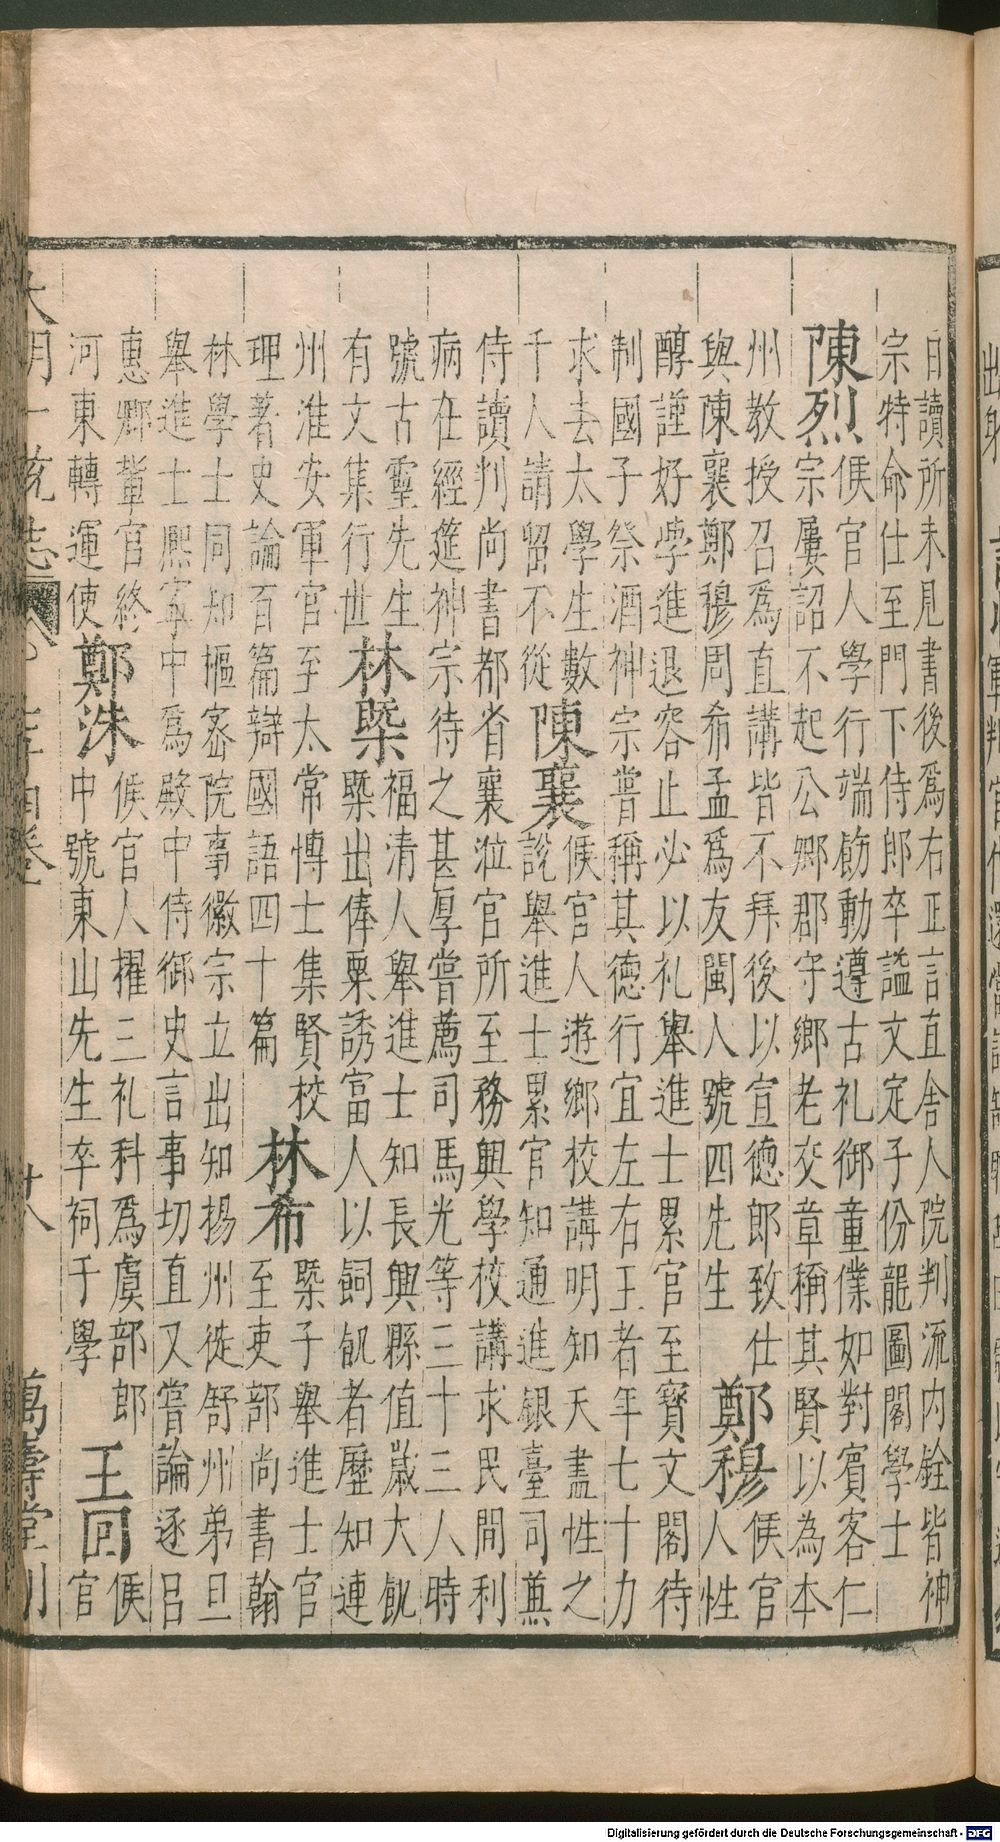 日讀所未見書後爲右正言直舍人院判流内銓皆神
宗特命仕至門下侍郎卒謚文定子份龍圖閣學士
陳烈
侯官人學行端飭動遵古礼御童僕如對賓客仁
宗屢詔不起公卿郡守鄉老交章稱其賢以為本
州教授召爲直講皆不拜後以宣德郎致仕
與陳襄鄭穆周希孟爲友閩人號四先生
鄭穆
侯官
人性
醇謹好學進退容止必以礼舉進士累官至寶文閣待
制國子祭酒神宗嘗稱其德行宜左右王者年七十力
求去太學生數
千人請留不從
陳襄
侯官人遊鄉校講明知天盡性之
說舉進士累官知通進銀臺司兼
侍讀判尚書都省襄涖官所至務興學校講求民間利
病在經筵神宗待之甚厚嘗薦司馬光等三十三人時
號古靈先生
有文集行世
林㮣
福清人舉進士知長興縣值歲大飢
㮣出俸粟誘富人以飼飢者歷知連
州淮安軍官至太常博士集賢校
理著史論百篇辯國語四十篇
林希
㮣子舉進士官
至吏部尚書翰
林學士同知樞密院事徽宗立出知揚州徙舒州弟旦
舉進士熙寧中爲殿中侍御史言事切直又嘗論逐呂
惠卿輩官終
河東轉運使
鄭洙
侯官人擢三礼科爲虞部郎
中號東山先生卒祠于學
王回
侯
官
大明一統志 七十四卷 廿八 萬壽堂刊
Digitalisierung gefördert durch die Deutsche Forschungsgemeinschaft - DFG